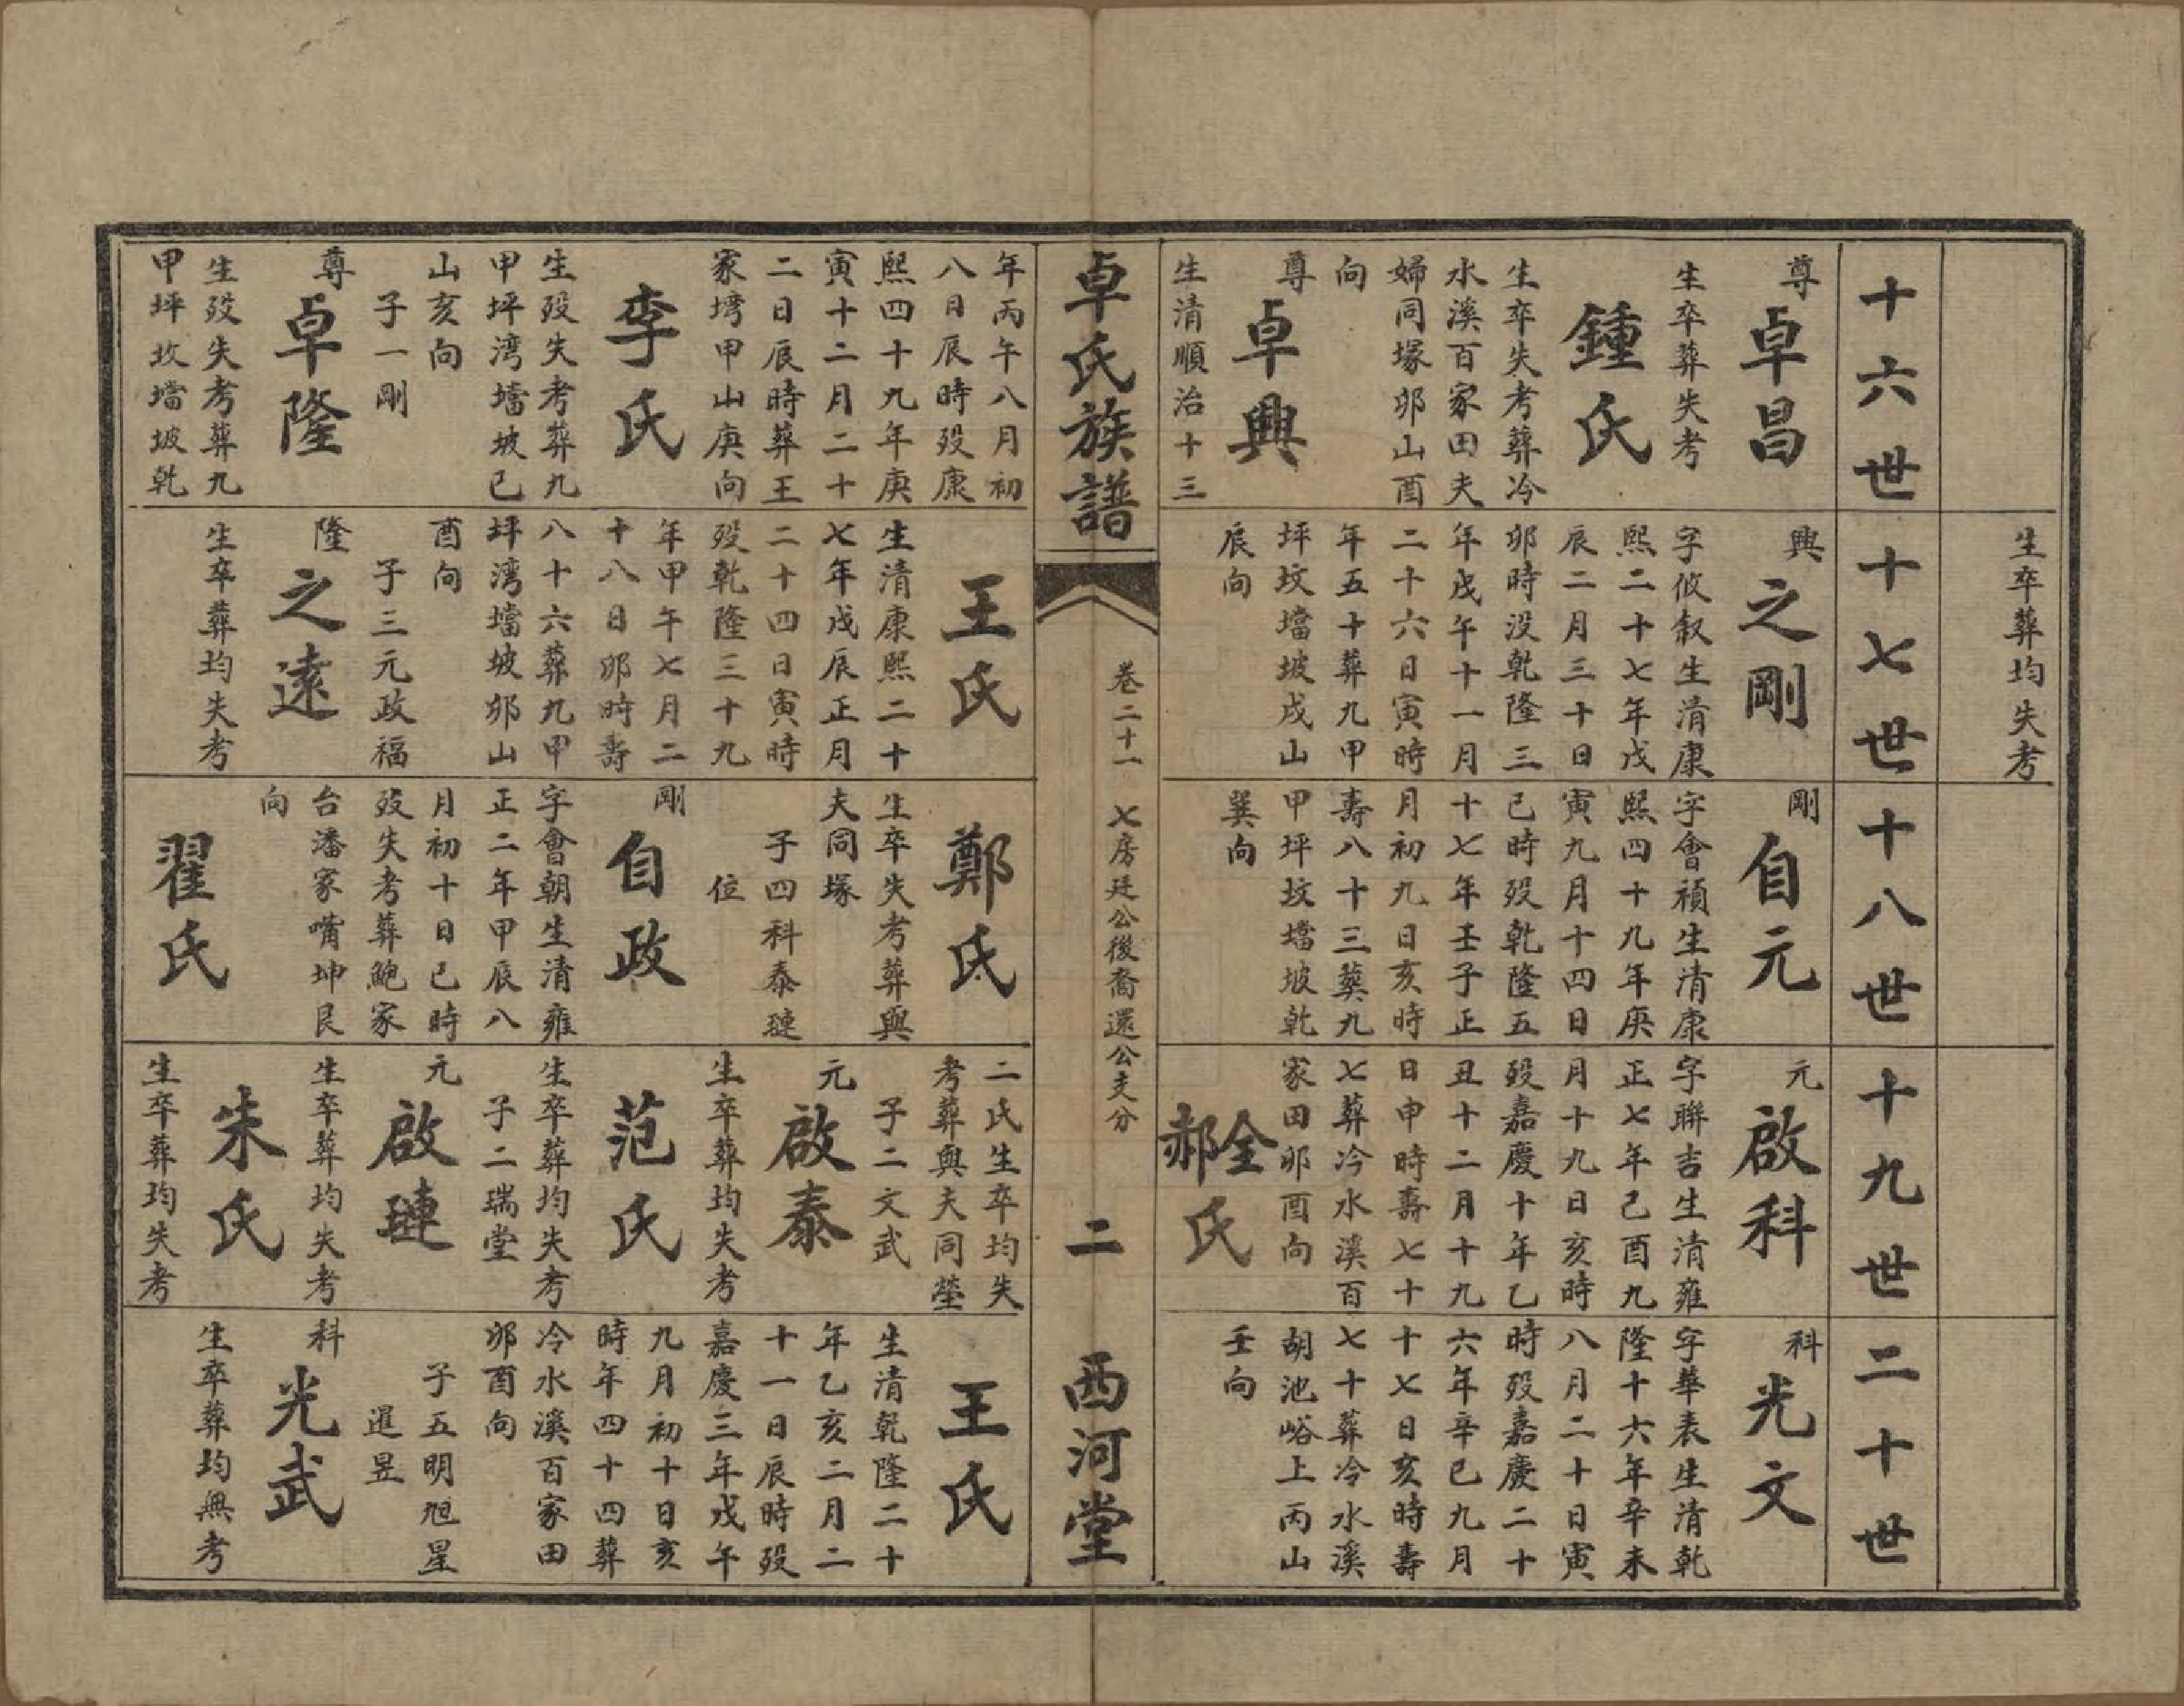 生卒葬均失考
十六世
尊
卓昌
生卒葬失考
鍾氏
生卒失考葬冷
水溪百家田夫
婦同塚卯山酉
向
尊
卓興
生清順治十三
年丙午八月初
八日辰時歿康
熙四十九年庚
寅十二月二十
二日辰時葬王
家塆甲山庚向
李氏
生歿失考葬九
甲坪湾壋坡已
山亥向
子一剛
尊
卓隆
生歿失考葬九
甲坪坟壋坡乾
十七世
興
之剛
字攸叙生清康
熙二十七年戊
辰二月三十日
卯時没乾隆三
年戊午十一月
二十六日寅時
年五十葬九甲
坪坟壋坡戌山
辰向
王氏
生清康熙二十
七年戊辰正月
二十四日寅時
歿乾隆三十九
年甲午七月二
十八日卯時壽
八十六葬九甲
坪湾壋坡卯山
酉向
子三元政福
隆
之遠
生卒葬均失考
十八世
剛
自元
字會禎生清康
熙四十九年庚
寅九月十四日
已時歿乾隆五
十七年壬子正
月初九日亥時
壽八十三葬九
甲坪坟壋坡乾
巽向
鄭氏
生卒失考葬與
夫同塚
子四科泰璉
位
剛
自政
字會朝生清雍
正二年甲辰八
月初十日已時
歿失考葬鮑家
台潘家嘴坤艮
向
翟氏
十九世
元
啟科
字聯吉生清雍
正七年己酉九
月十九日亥時
歿嘉慶十年乙
丑十二月十九
日申時壽七十
七葬冷水溪百
家田卯酉向
全
郝
氏
二氏生卒均失
考葬與夫同塋
子二文武
元
啟泰
生卒葬均失考
范氏
生卒葬均失考
子二瑞堂
元
啟璉
生卒葬均失考
朱氏
生卒葬均失考
二十世
科
光文
字華表生清乾
隆十六年辛未
八月二十日寅
時歿嘉慶二十
六年辛巳九月
十七日亥時壽
七十葬冷水溪
胡池峪上丙山
壬向
王氏
生清乾隆二十
年乙亥二月二
十一日辰時歿
嘉慶三年戊午
九月初十日亥
時年四十四葬
冷水溪百家田
卯酉向
子五明旭星
暹昱
科
光武
生卒葬均無考
卓氏族譜
卷二十一 七房廷公後裔還公支分
二
西河堂